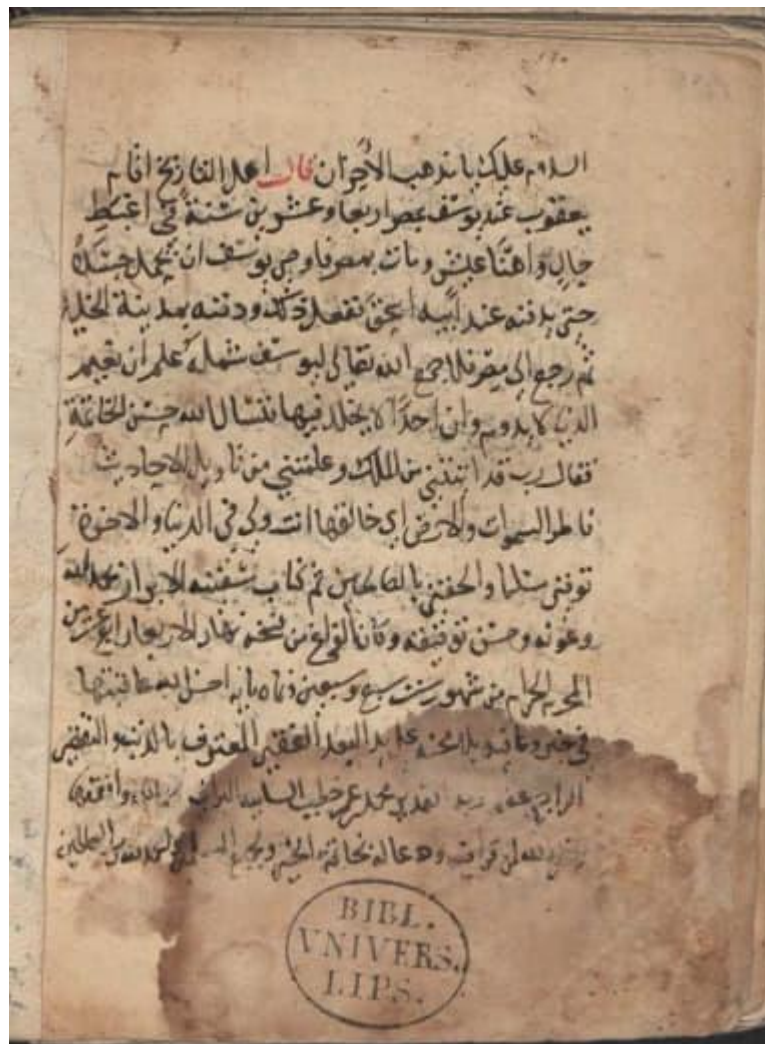 السلام عليك يا مذهب الأحزان قال اهل التاريخ اقام
يعقوب عند يوسف بمصر اربعا وعشرين سنة في اغبط
حال واهنا عيش ومات بمصر فاوصى يوسف ان يحمل جسده
حتى يدفنه عند ابيه اسحق ففعل ذلك ودفنه بمدينة الخليل
ثم رجع الى مصر فلما جمع الله تعالى ليوسف شمله علم ان نعيم
الدنيا لا يدوم وان احدا لا يخلد فيها فسال الله حسن الخاتمة
فقال رب قد اتيتني من الملك وعلمتني من تاويل الاحاديث
فاطر السموات والارض اي خالقها انت ولي في الدنيا والاخرة
توفني مسلما والحقني بالصالحين تم كتاب الابرار بحمد الله
وعونه وحسن توفيقه وكان الفراغ من نسخه نهار الاربعا رابع عشرين
المحرم الحرام من شهور سنة سبع وسبعين احسن الله عاقبتها
في خير وعافيه العبد الفقير المعترف بالذنب والتقصير
الراجي عفو خطيب
لمن قرا فيه ودعا له بخاتمة الخير ولجميع والحمد لله رب العالمين
BIBL.
VNIVERS.
LIPS.